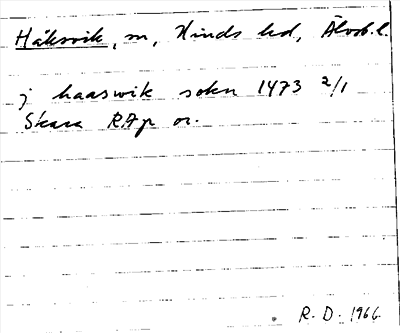 Håksvik, sn, Kinds hd, Älvsb. l.
j haaswik sokn 1473 2/1
Skara RAp or.
R. D. 1966.